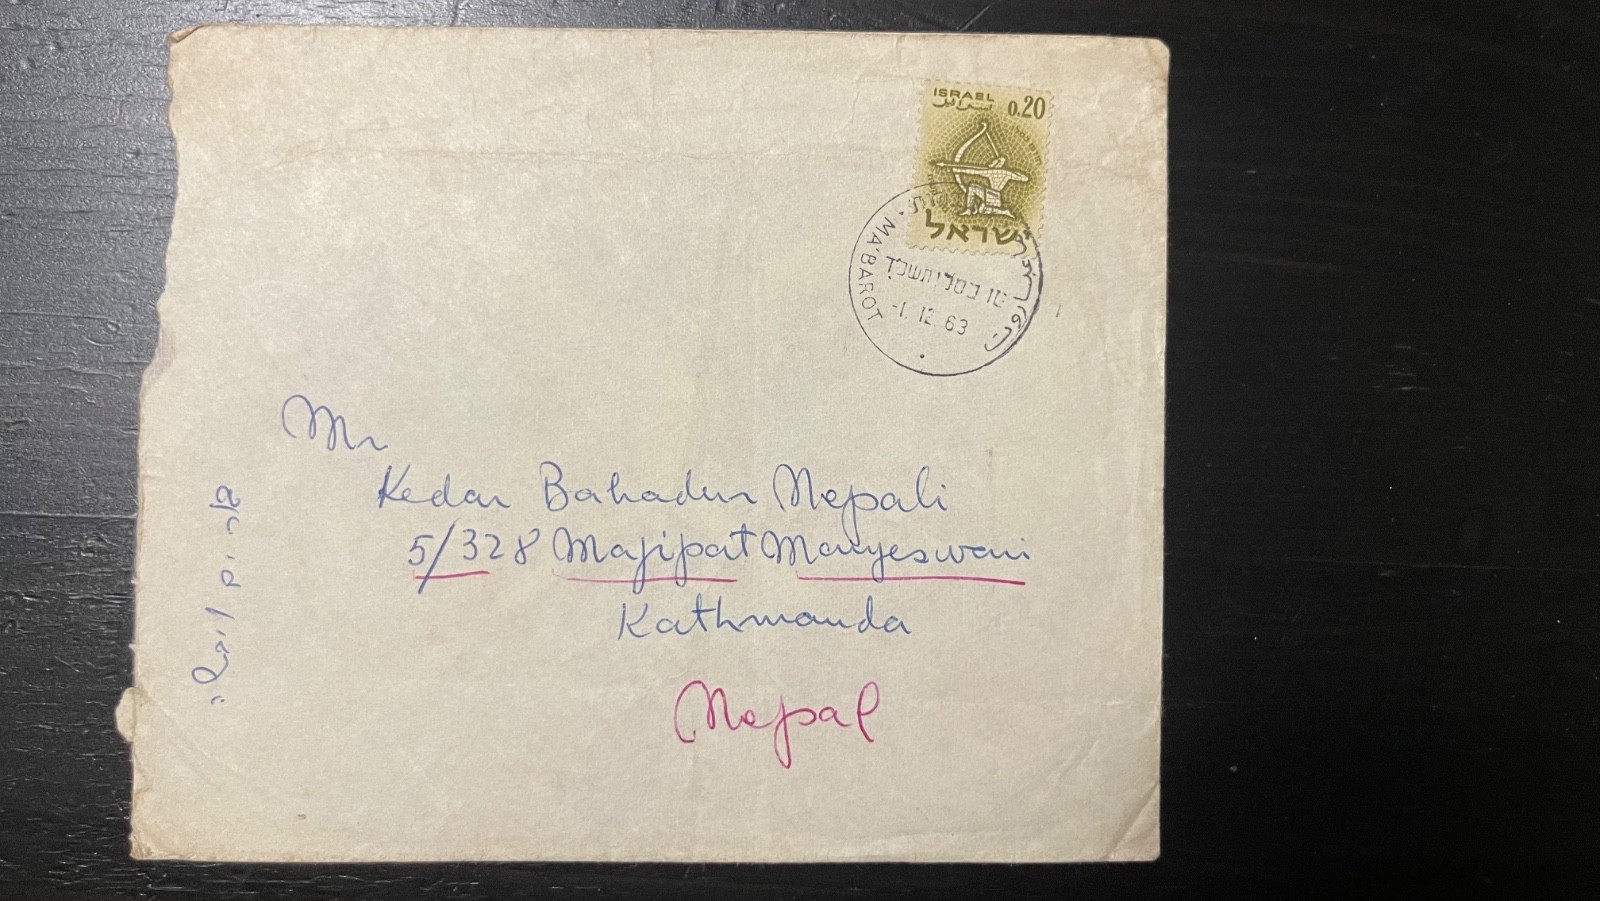 ISRAEL
إسرائيل
0.20
ישראל
MA'BAROT
טו כסלו תשכד
-1. 12. 63
Mr
Kedar Bahadur Nepali
5/328 Majipat Manyeswari
Kathmanda
Nepal